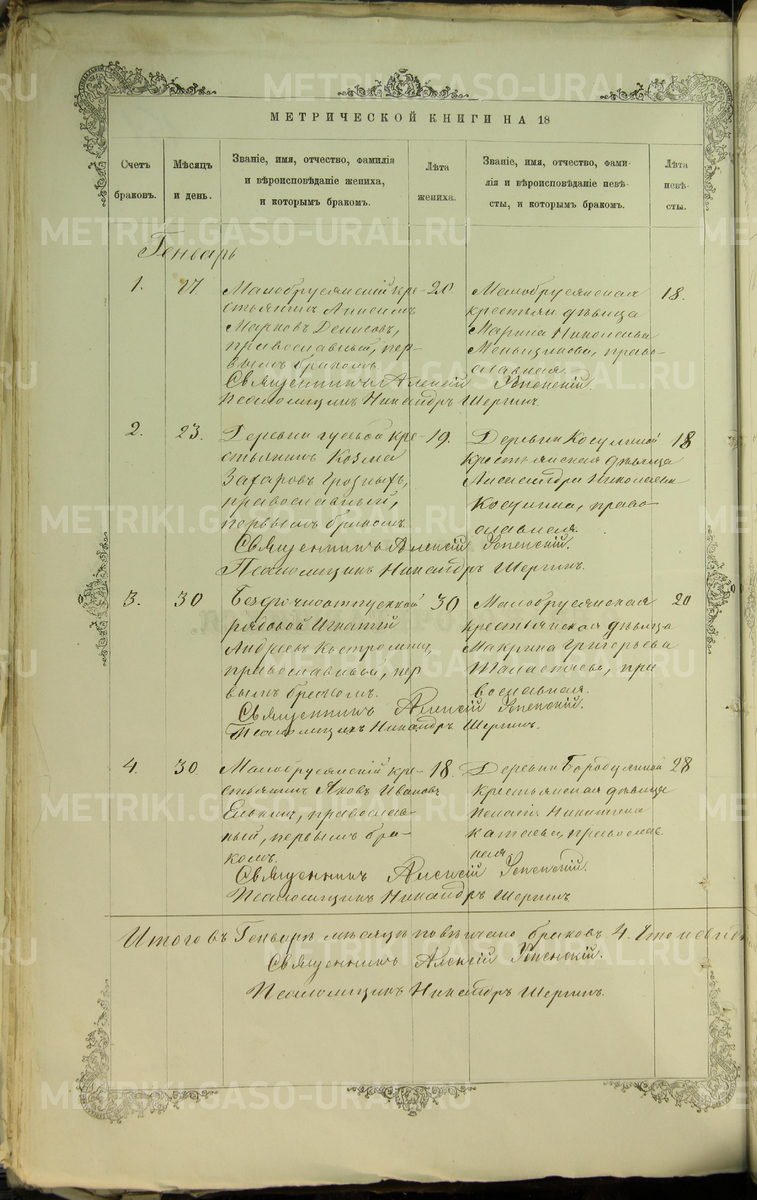 МЕТРИЧЕСКОЙ КНИГИ НА 18
Счетъ браковъ.
Мѣсяцъ и день.
Званіе, имя, отчество, фамилія и вѣроисповѣданіе жениха, и которымъ бракомъ.
Лѣта жениха.
Званіе, имя, отчество, фами-
лія и вѣроисповѣданіе невѣ-
сты, и которымъ бракомъ.
Лѣта невѣ-
сты.
Генварь
1.
Малобрусянскій кре-
стьянинъ Анисимъ
Марковъ Денисовъ,
православный, пер-
вымъ бракомъ.
20
Малобрусянская
крестьян дѣвица
Марина Николаева
Меньщикова, право-
славная.
18.
Священникъ Алексій Успенскій.
Псаломщикъ Никандръ Шергинъ.
2.
23.
Деревни Гусевой кре-
стьянинъ Козма
Захаровъ Грозныхъ,
православный,
первымъ бракомъ
19.
Деревни Косулиной
крестьянская дѣвица
Александра Николаева
право-
славная.
18
Священникъ Алексій Успенскій.
Псаломщикъ Никандръ Шергинъ.
3.
30
Безсрочноотпускной
рядовой Игнатій
Андреевъ Костроминъ,
православный, пер
вымъ бракомъ.
30
Малобрусянская
крестьянская дѣвица
Макрина Григорьева
пра
вославная.
20
Священникъ Алексій Успенскій.
Псаломщикъ Никандръ Шергинъ.
4.
30.
Малобрусянскій кре-
стьянинъ Яковъ Ивановъ
православ-
ный, первымъ бра-
комъ.
18.
Деревни Бородулиной
крестьянская дѣвица
Пелагія Никитина
православ
ная
28
Священникъ Алексій Успенскій.
Псаломщикъ Никандръ Шергинъ
Итого въ Генварѣ мѣсяцѣ повѣнчано браковъ 4. Что и
Священникъ Алексій Успенскій.
Псаломщикъ Никандръ Шергинъ.
METRIKI.GASO-URAL.RU